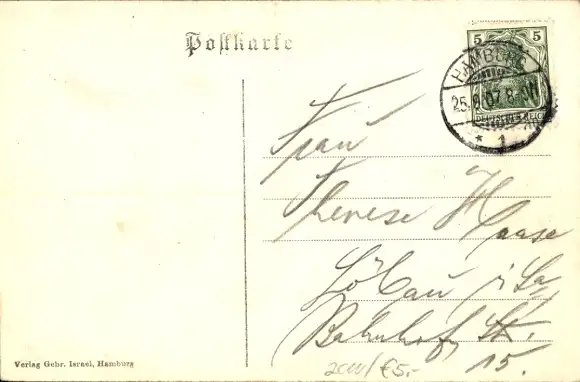 Postkarte
5 5
HAMBURG
25.8.07.8-9N
DEUTSCHES REICH
* 1
Frau
Therese Haase
Löbau i/Sa
Bahnhof Str.
15.
€5.-
Verlag Gebr. Israel, Hamburg